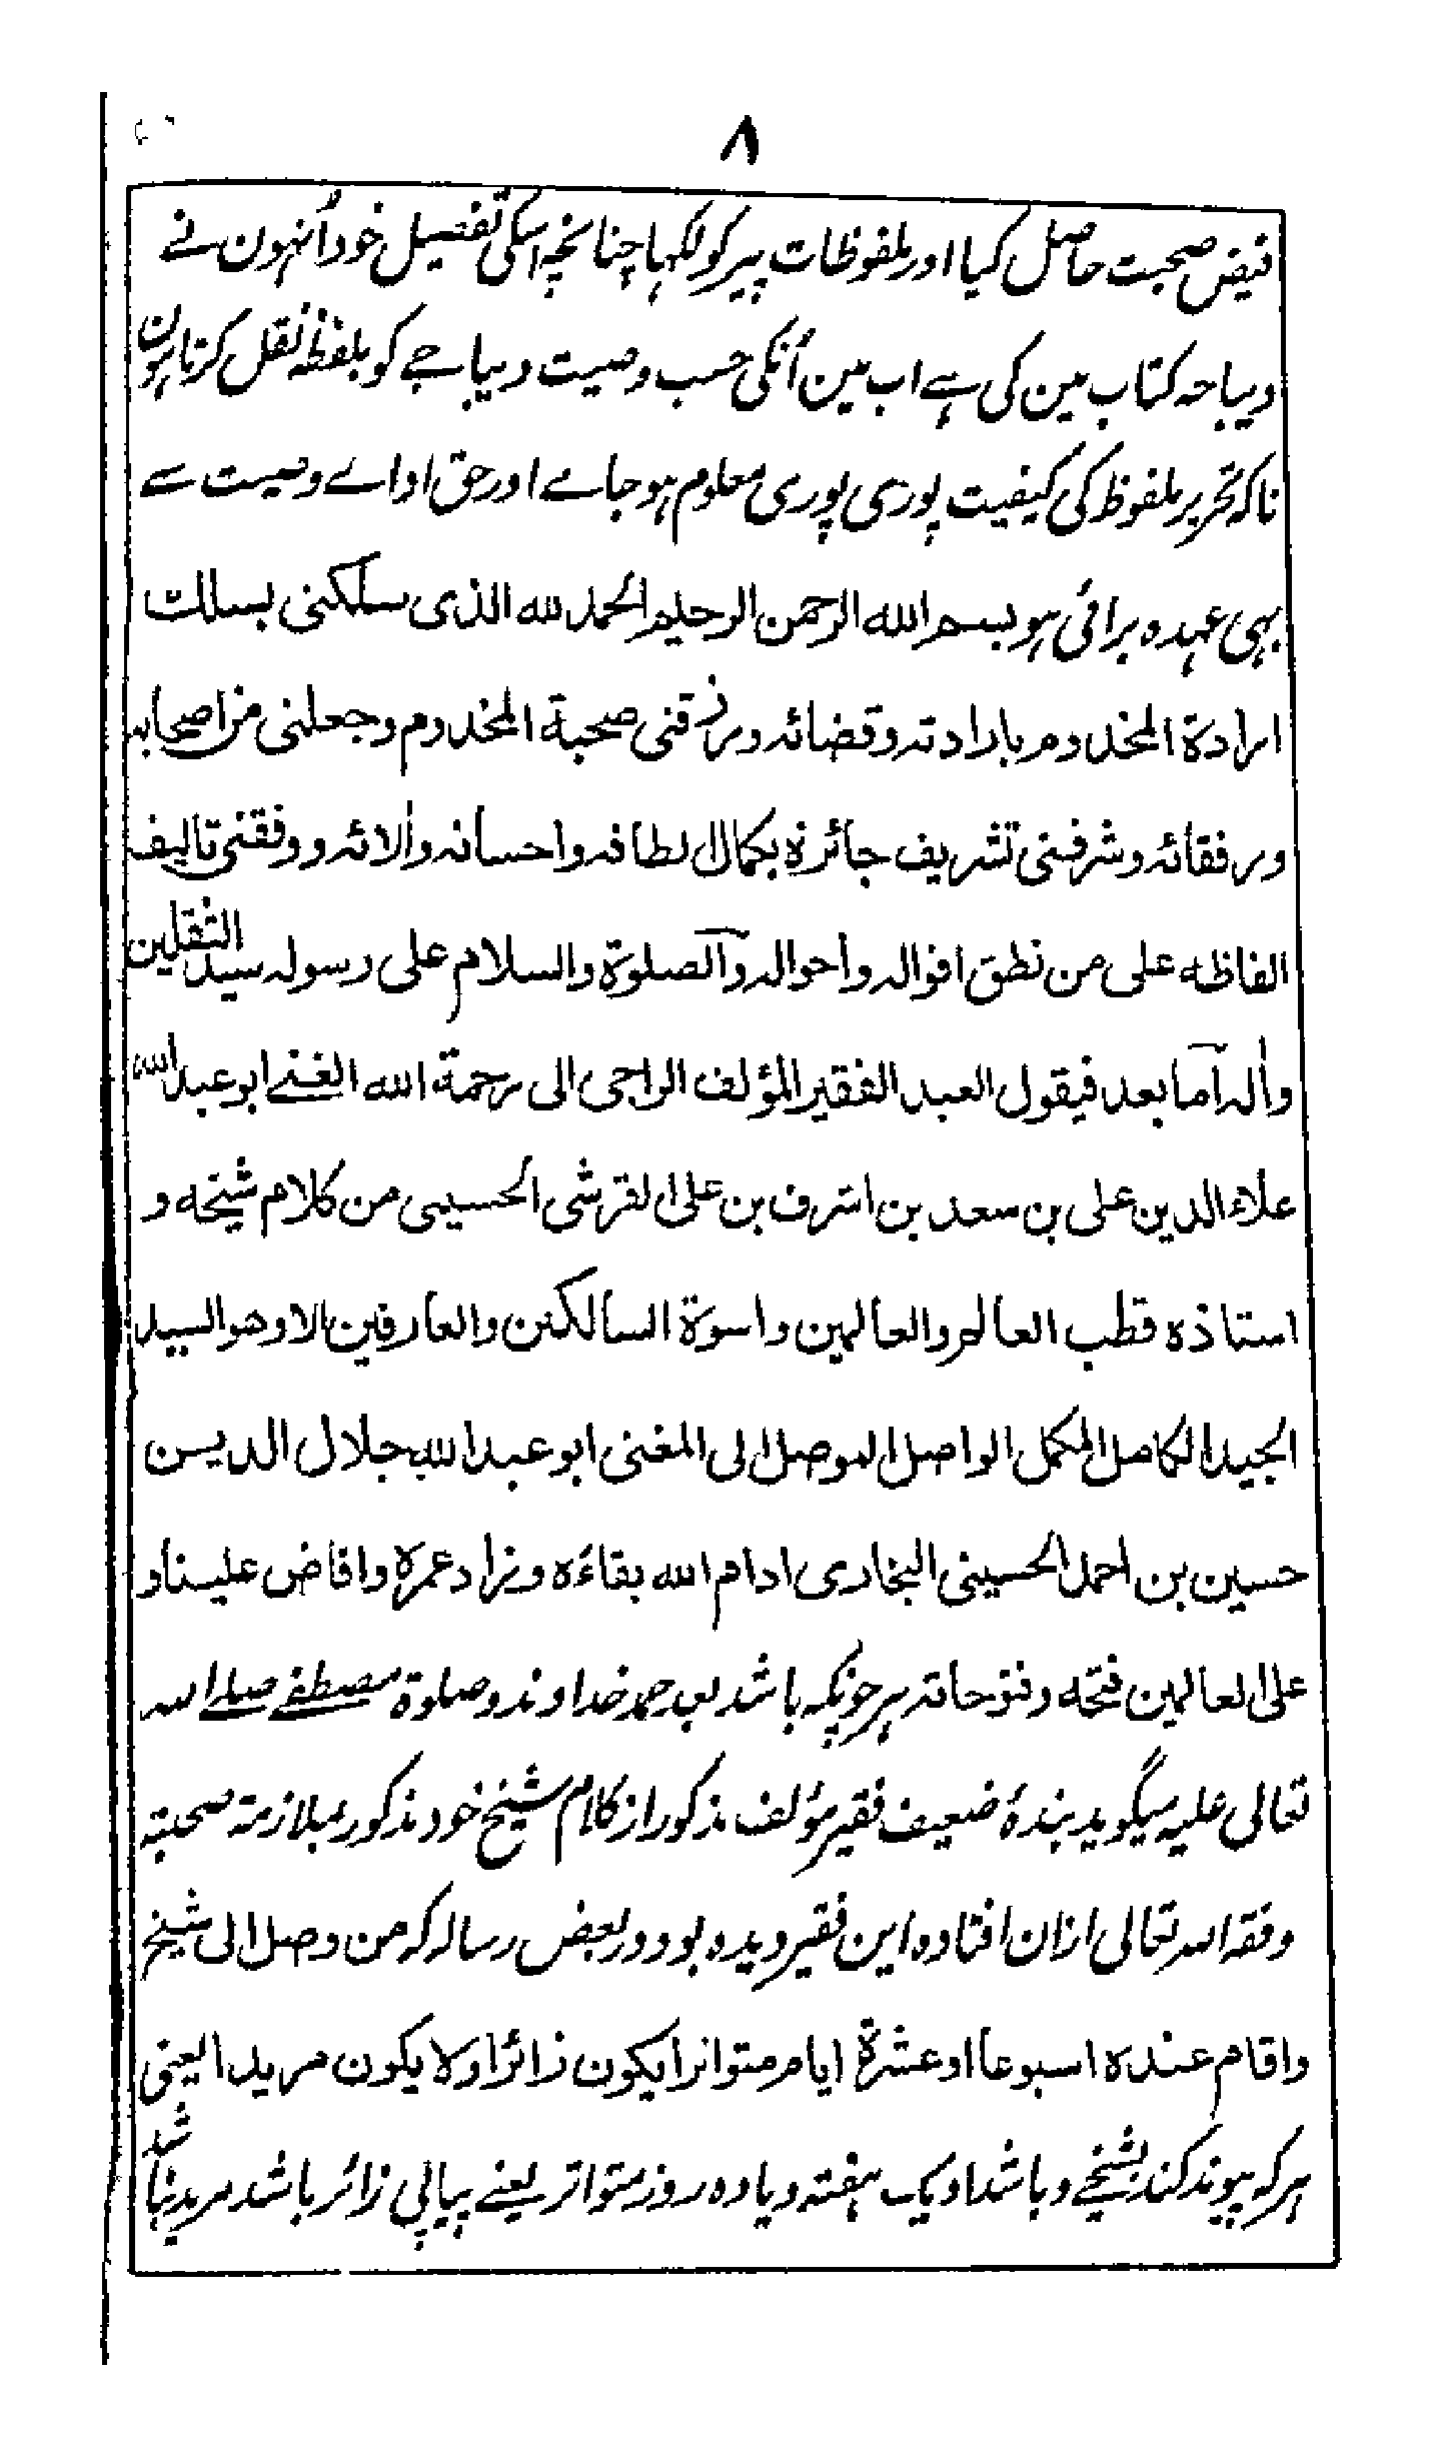 ۸
فیض صحبت حاصل کیا اور ملفوظات پیر کو لکہا چنانچہ اسکی تفصیل خود اُنہون نے
دیباجہ کتاب مین کی ہے اب مین اُنکی حسب وصیت دیباجے کو بلفظہ نقل کرتا ہون
تاکہ تحریر ملفوظ کی کیفیت پوری پوری معلوم ہو جاے اور حق اداے وصیت سے
بہی عہدہ برائی ہو بسم الله الرحمن الرحیم الحمد لله الذی سلکنی بسلک
ارادة المخدوم بارادته وقضائه ورزقنی صحبة المخدوم وجعلنی من اصحابه
ورفقائه وشرفنی تشریف جائزة بکمال الطافه واحسانه وألائه ووفقنی تالیف
الفاظه علی من نطق اقواله واحواله والصلوة والسلام علی رسوله سید الثقلین
واله اما بعد فیقول العبد الفقیر المؤلف الراجی الی رحمة الله الغنے ابو عبد الله
علاء الدین علی بن سعد بن اشرف بن علی القرشی الحسینی من کلام شیخه و
استاذه قطب العالم والعالمین واسوة السالکین والعارفین الا وهو السید
الجید الکامل المکمل الواصل الموصل الی المغنی ابو عبد الله جلال الدین
حسین بن احمد الحسینی البخاری ادام الله بقاءه وزاد عمره وافاض علینا و
علی العالمین فتحه وفتوحاته ہر چونکہ باشد بعد حمد خداوند وصلوة مصطفے صلے اللہ
تعالی علیہ میگوید بندۂ ضعیف فقیر مؤلف مذکور از کلام شیخ خود مذکور بملازمۃ صحبتہ
وفقہ اللہ تعالی ازان افتادہ این فقیر دیدہ بود در بعض رسالہ کہ من وصل الی شیخ
واقام عنده اسبوعا او عشرة ایام متواترا یکون زائرا ولا یکون مریدا یعنی
ہر کہ پیوند کند بشیخے و باشد او یک ہفتہ و یا دہ روز متواتر یعنے پیاپی زائر باشد مرید نباشد